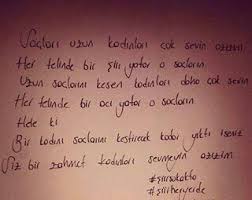 Saçları uzun kadınları çok sevin azizim
Her telinde bir şiir yatar o saçların
Uzun saçlarını kesen kadınları daha çok sevin
Her telinde bir acı yatar o saçların
Hele ki
Bir kadını saçlarını kestirecek kadar yıktı iseniz
Siz bir zahmet kadınları sevmeyin azizim
#şiirsokakta
#şiirheryerde